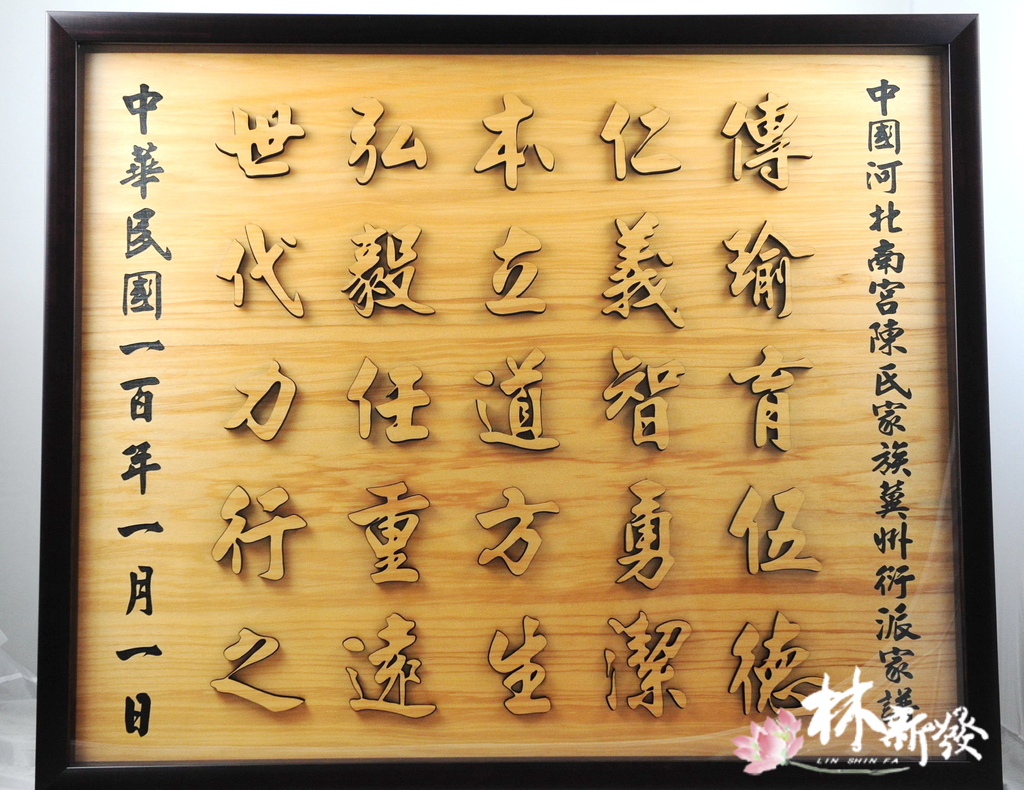 中國河北南宮陳氏家族冀州衍派家譜
傳瑜育伍德
仁義智勇潔
本立道方生
弘毅任重遠
世代力行之
中華民國一百年一月一日
林新發
LIN SHIN FA